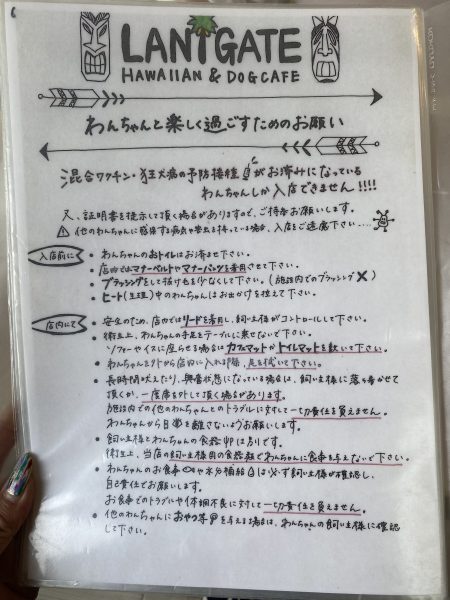 LANIGATE
HAWAIIAN & DOGCAFE
わんちゃんと楽しく過ごすためのお願い
混合ワクチン・狂犬病の予防接種がお済みになっている
わんちゃんしか入店できません!!!!
又、証明書を提示して頂く場合がありますので、ご持参お願いします。
⚠ 他のわんちゃんに感染する病気や寄生虫を持っている場合、入店をご遠慮下さい....
入店前に
• わんちゃんのおトイレはお済ませ下さい。
• 店内ではマナーベルトやマナーパンツを着用させて下さい。
• ブラッシングをして抜け毛を少なくして下さい。(施設内でのブラッシング✕)
• ヒート(生理)中のわんちゃんはお出かけを控えて下さい。
店内にて
• 安全のため、店内ではリードを着用し、飼い主様がコントロールして下さい。
• 衛生上、わんちゃんの手足をテーブルに乗せないで下さい。
ソファーやイスに座らせる場合はカフェマットかトイレマットを敷いて下さい。
• わんちゃんを外から店内に入れる際、足を拭いて下さい。
• 長時間吠えたり、興奮状態になっている場合は、飼い主様に落ち着かせて
頂くか、一度席を外して頂く場合があります。
施設内での他のわんちゃんとのトラブルに対して一切責任を負えません。
わんちゃんから目を離さないようお願いします。
• 飼い主様とわんちゃんの食器は別です。
衛生上、当店の飼い主様用の食器類でわんちゃんに食事を与えないで下さい。
• わんちゃんのお食事や水分補給は必ず飼い主様が確認し、
自己責任でお願いします。
お食事でのトラブルや体調不良に対して一切責任を負えません。
• 他のわんちゃんにおやつ等を与える場合は、わんちゃんの飼い主様に確認
して下さい。